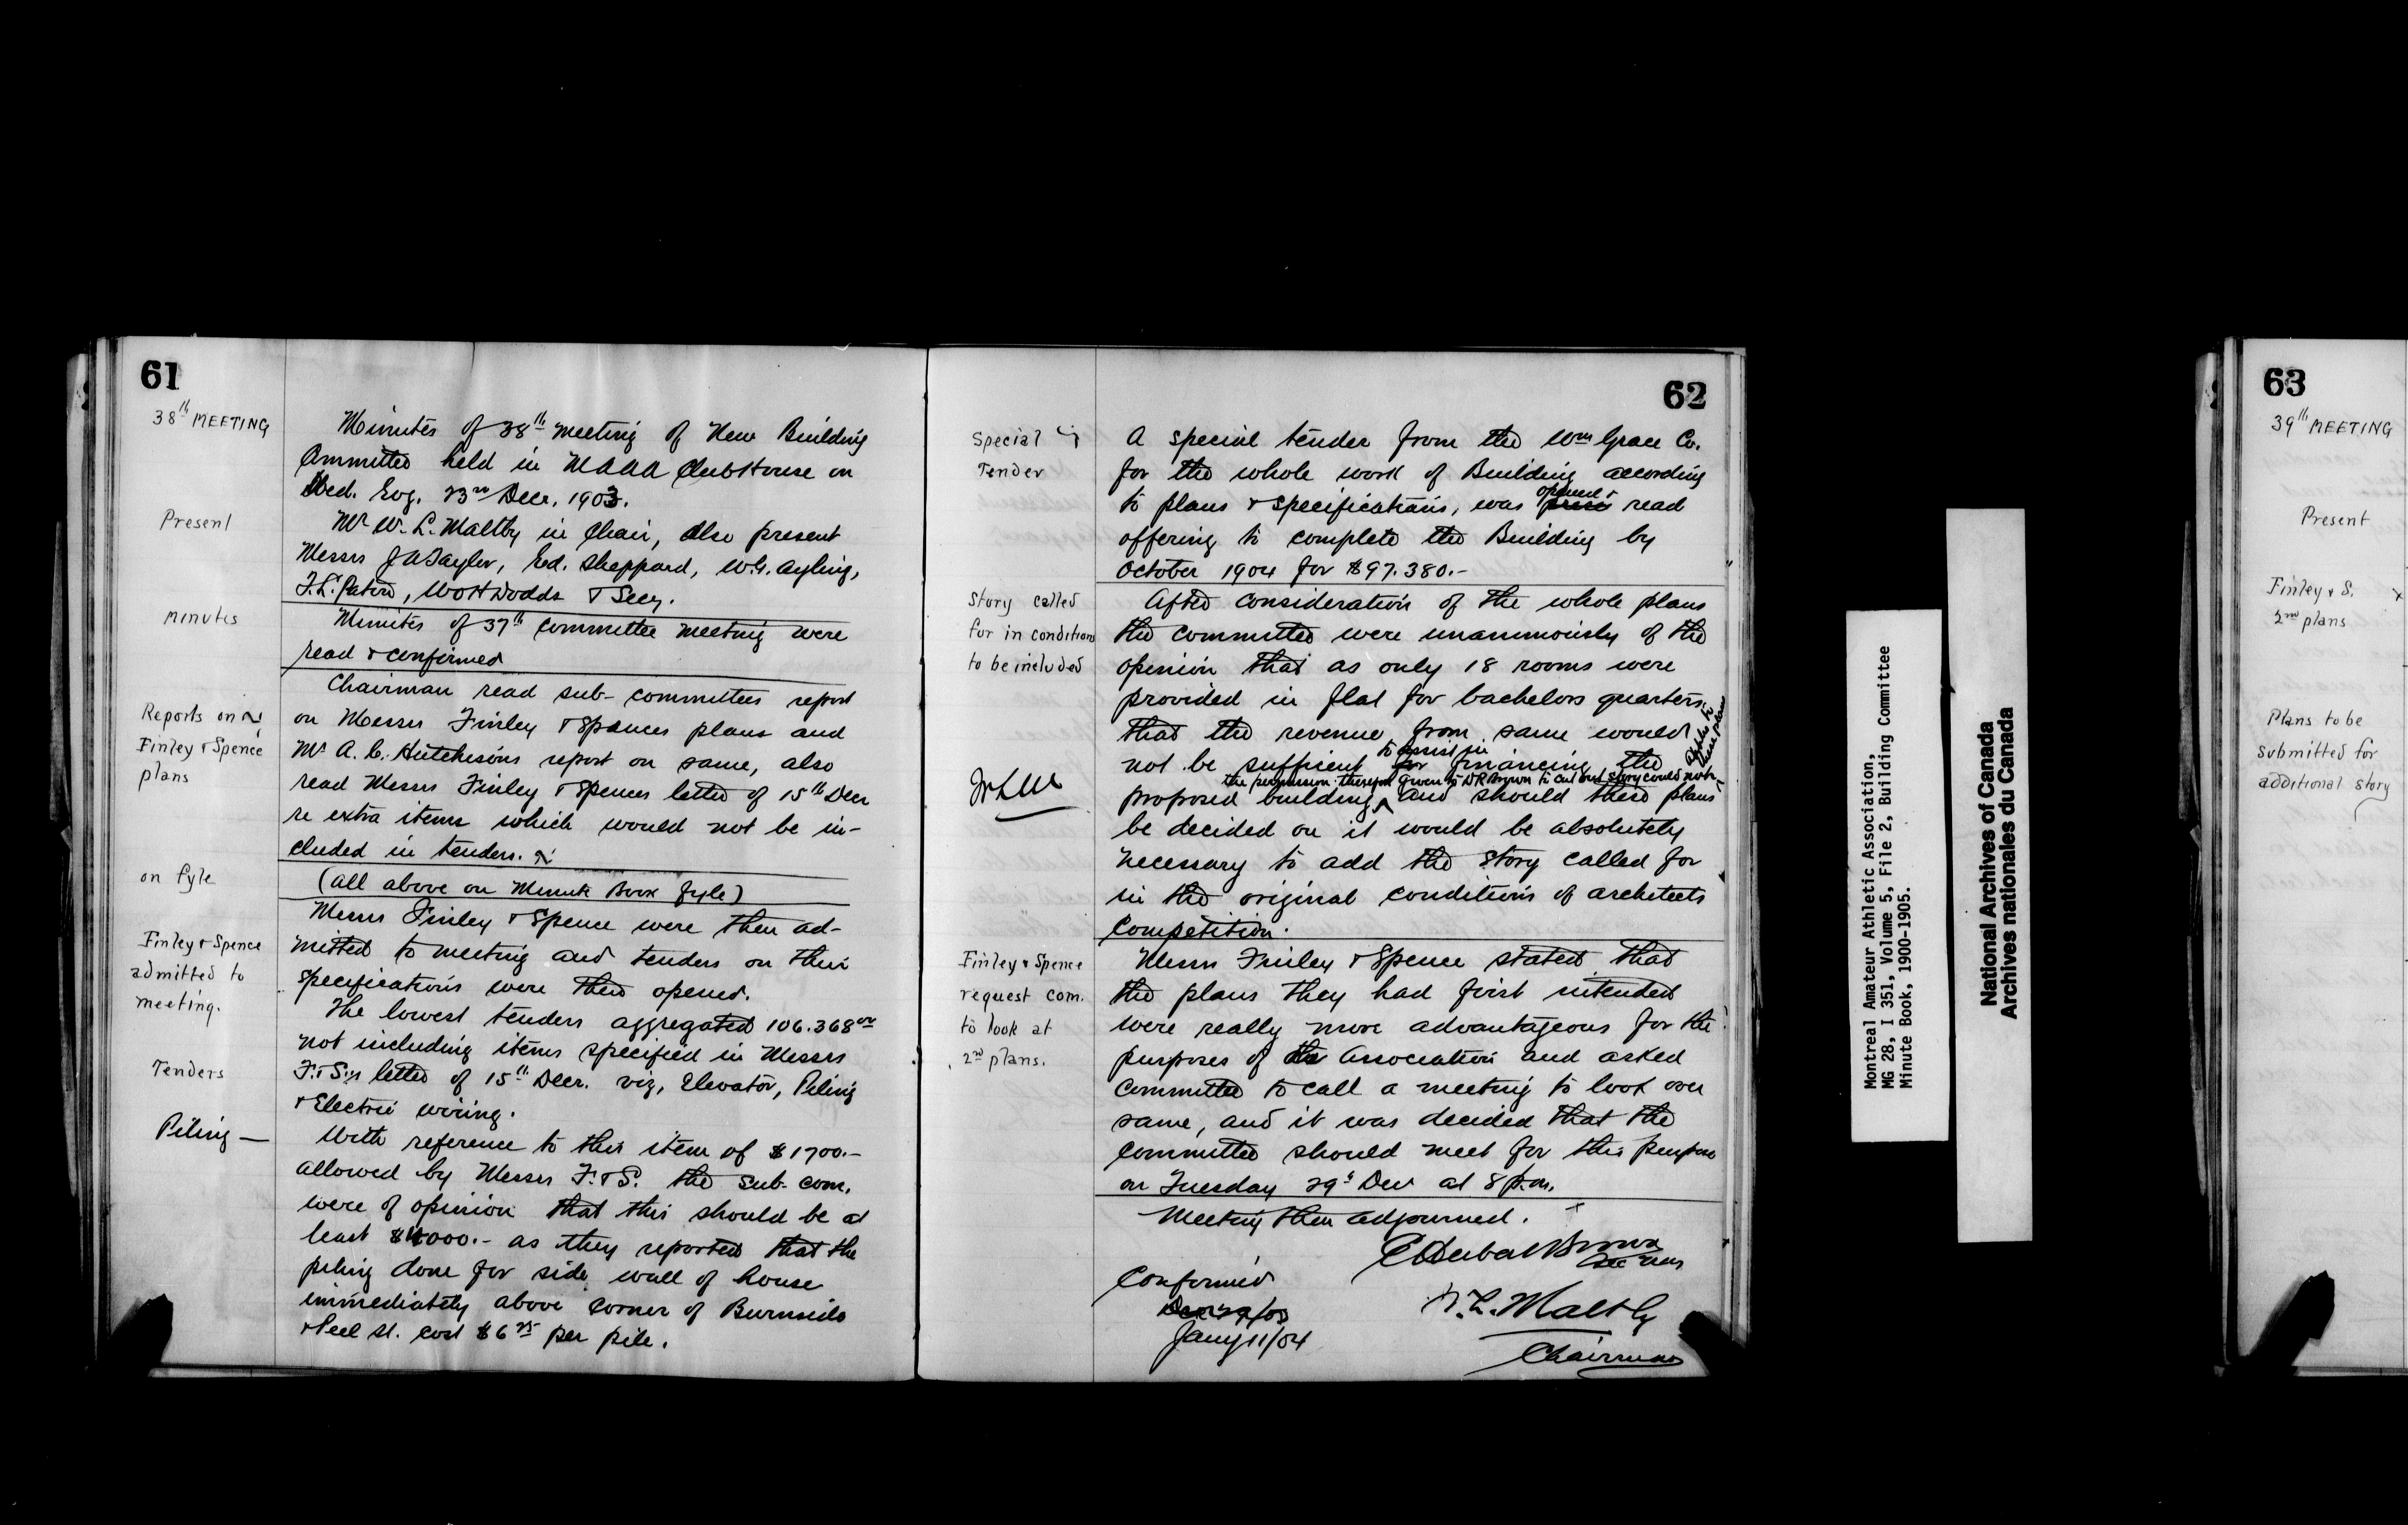 61
38th MEETING
Minutes of 38th meeting of New Building
Committee held in MAAA ClubHouse on
Wed. Evg. 23rd Decr. 1903.
Present
Mr W. L. Maltby in Chair, Also present
Messrs J A Taylor, Ed. Sheppard, W.G. Ayling,
T.L. Paton, W O H Dodds & Secy.
minutes
Minutes of 37th Committee meeting were
read & confirmed
Reports on
Finley & Spence
plans
Chairman read sub-committees report
on Messrs Finley & Spences plans and
Mr A. C. Hutchisons report on same, also
read Messrs Finley & Spences letter of 15th Decr
re extra items which would not be in-
cluded in tenders.
on fyle
(all above on Minute Book fyle)
Finley & Spence
admitted to
meeting.
Messrs Finley & Spence were then ad-
mitted to meeting and tenders on their
specifications were then opened.
Tenders
The lowest tenders aggregated 106.368 00
not including items specified in Messrs
F. & S.'s letter of 15th Decr. viz, Elevator, Piling
& Electric wiring.
Piling —
With reference to this item of $1700.-
allowed by Messrs F. & S. the sub-com.
were of opinion that this should be at
least $4000.- as they reported that the
piling done for side wall of house
immediately above corner of Burnside
& Peel St. cost $6 75 per pile.
62
Special
Tender
A special tender from the Wm Grace Co.
for the whole work of Building according
to plans & specifications, was opened & read
offering to complete the Building by
October 1904 for $97.380.-
Story called
for in conditions
to be included
After consideration of the whole plans
the committee were unanimously of the
opinion that as only 18 rooms were
provided in flat for bachelors quarters
that the revenue from same would
not be sufficient to assist in for financing the
the permission therefor given to D R Brown to cut out story could not
apply to these plans
proposed building and should these plans
be decided on it would be absolutely
necessary to add the story called for
in the original conditions of architects
competition.
WLM
Finley & Spence
request com.
to look at
2nd plans.
Messrs Finley & Spence stated that
the plans they had first intended
were really more advantageous for the
purposes of the Association and asked
Committee to call a meeting to look over
same, and it was decided that the
Committee should meet for this purpose
on Tuesday 29th Decr at 8 p.m.
Meeting then adjourned.
C Herbert Brown
Sec Treas
Confirmed
Decr 29/03
Jany 11/04
W. L. Maltby
Chairman
Montreal Amateur Athletic Association,
MG 28, I 351, Volume 5, File 2, Building Committee
Minute Book, 1900-1905.
National Archives of Canada
Archives nationales du Canada
63
39th MEETING
Present
Finley & S.
2nd plans
Plans to be
submitted for
additional story